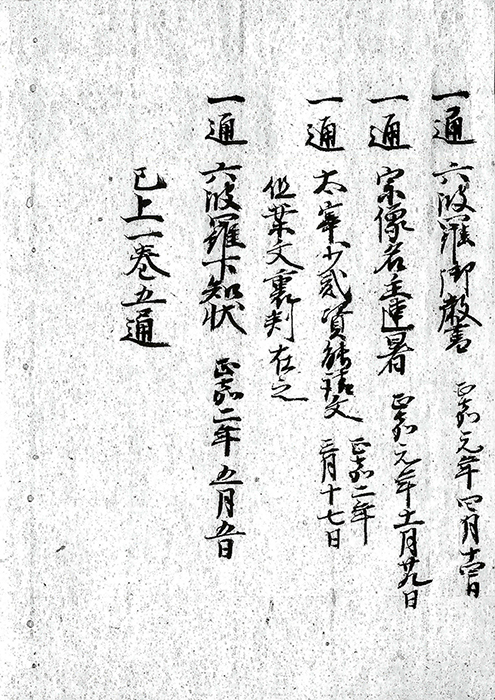 一通 六波羅御教書 正嘉元年四月十四日
一通 宗像名主連署 正嘉元年十一月廿九日
一通 太宰少貳資能請文 正嘉二年
三月十七日
但葉文裏判在之
一通 六波羅下知状 正嘉二年五月五日
已上一巻五通